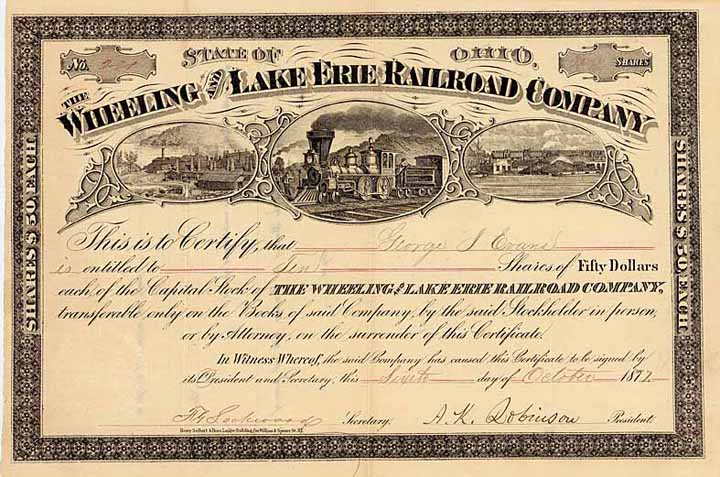 No. 221
STATE OF OHIO,
SHARES
THE WHEELING AND LAKE ERIE RAILROAD COMPANY
SHARES $50, EACH
SHARES $50, EACH
This is to Certify, that George S Evans
is entitled to Ten Shares of Fifty Dollars
each, of the Capital Stock of THE WHEELING AND LAKE ERIE RAILROAD COMPANY,
transferable only on the Books of said Company, by the said Stockholder in person,
or by Attorney, on the surrender of this Certificate.
In Witness Whereof, the said Company has caused this Certificate to be signed by
its President and Secretary, this Sixth day of October 1877.
Secretary. A. K. Robinson President.
Henry Seibert & Bros. Ledger Building, Cor William & Spruce St. N.Y.